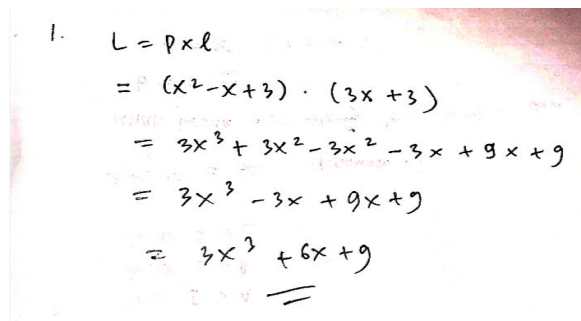 1. L = p x l
= (x² - x + 3) . (3x + 3)
= 3x³ + 3x² - 3x² - 3x + 9x + 9
= 3x³ - 3x + 9x + 9
= 3x³ + 6x + 9